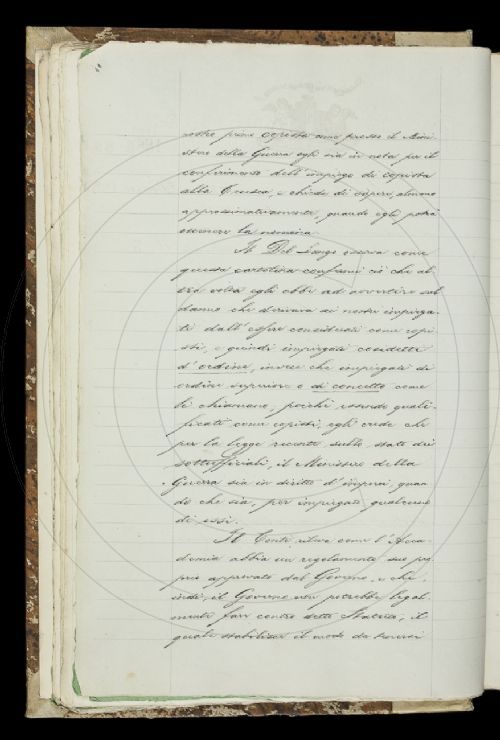 nostro primo copista anno presso il Mini-
stero della Guerra egli sia in nota per il
conferimento dell'impiego di copista
alla Crusca, e chiede di sapere, almeno
approssimativamente, quando egli potrà
ottenere la nomina.
Il Del Lungo osserva come
questa cartolina confermi ciò che al-
tra volta egli ebbe ad avvertire sul
danno che derivava ai nostri impiega-
ti dall'essere considerati come copi-
sti, e quindi impiegati cosidetti
d'ordine, invece che impiegati di
ordine superiore o di concetto come
li chiamano, poichè essendo quali-
ficati come copisti, egli crede che
per la legge recente sullo stato dei
sottufficiali, il Ministero della
Guerra sia in diritto d'imporci, quan-
do che sia, per impiegato qualcuno
di essi.
Il Conti rileva come l'Acca-
demia abbia un regolamento suo pro-
prio approvato dal Governo, e che,
indi, il Governo non potrebbe legal-
mente fare contro detti Statuti, il
quale stabilisce il modo da tenersi